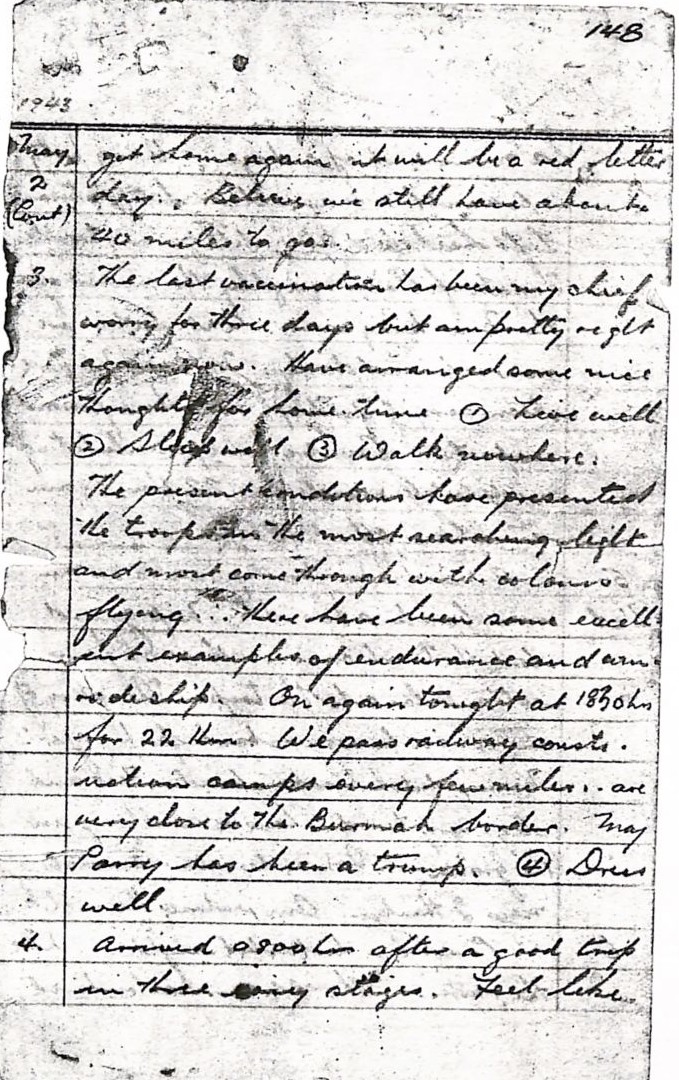 148
1943
May get home again it will be a red letter
2 day. Believe we still have about
(Cont) 40 miles to go.
3. The last vaccination has been my chief
worry for three days but am pretty right
again now. Have arranged some nice
thoughts for home time ① Live well
② Sleep well ③ Walk nowhere.
The present conditions have presented
the troops in the most searching light
and most come through with colours
flying... There have been some excell-
ent examples of endurance and com-
radeship. On again tonight at 1830 hrs
for 22 Km. We pass railway constr-
uction camps every few miles.. are
very close to the Burmah border. Maj
Parry has been a trump. ④ Dress
well.
4. Arrived 0800 hrs after a good trip
in three easy stages. Feel like